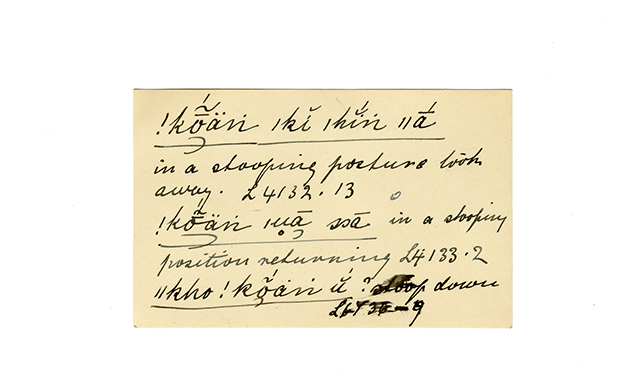 !kõ̃äṅ ıkĭ ıhĭṅ ııā́
in a stooping posture took
away. L 4132 . 13
!kõ̃äṅ ı̣u̯ā ssā in a stooping
position returning L4133.2
ııkho !kõ̃äṅ ŭ́ ? stoop down